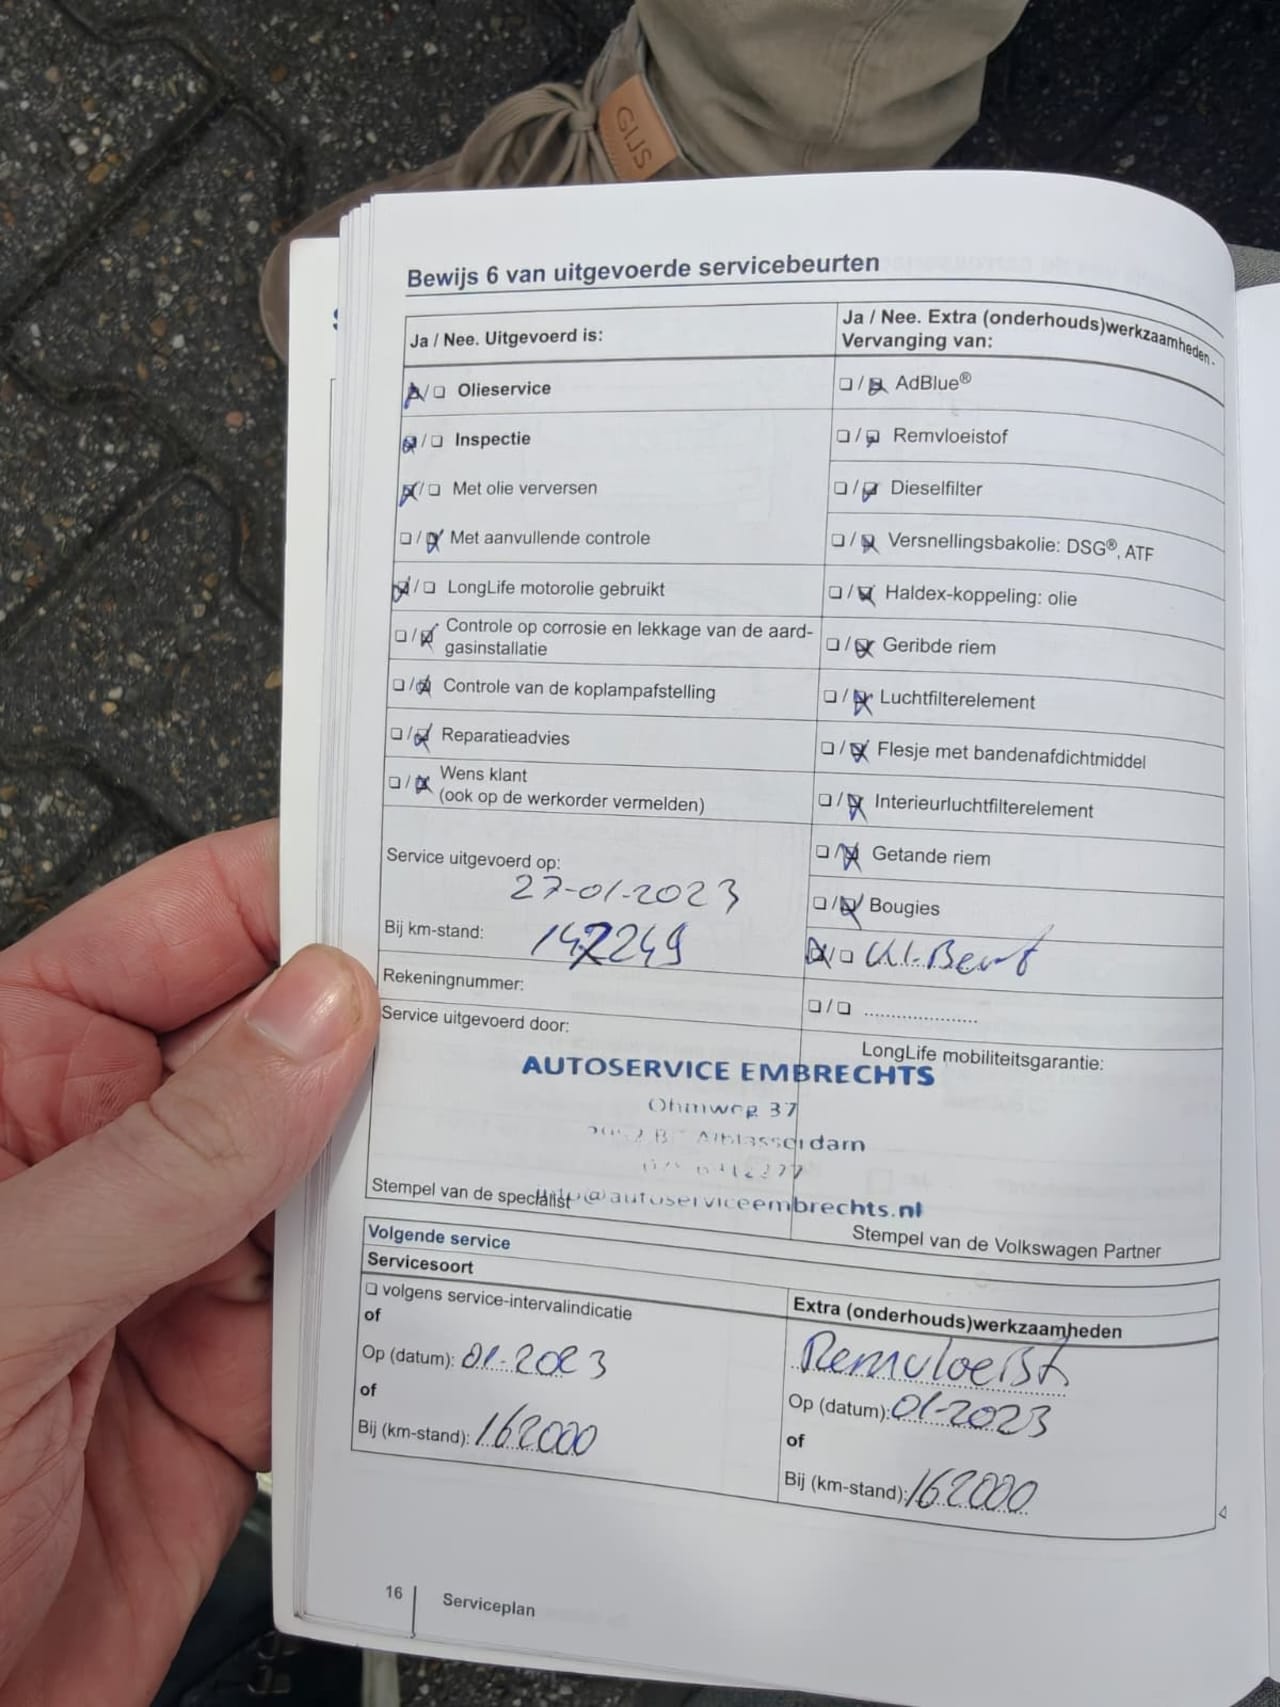 GIJS
Bewijs 6 van uitgevoerde servicebeurten
Ja / Nee. Uitgevoerd is:
Olieservice
Inspectie
Met olie verversen
Met aanvullende controle
LongLife motorolie gebruikt
Controle op corrosie en lekkage van de aard-
gasinstallatie
Controle van de koplampafstelling
Reparatieadvies
Wens klant
(ook op de werkorder vermelden)
Service uitgevoerd op:
27-01-2023
Bij km-stand: 142249
Rekeningnummer:
Service uitgevoerd door:
Ja / Nee. Extra (onderhouds)werkzaamheden -
Vervanging van:
AdBlue®
Remvloeistof
Dieselfilter
Versnellingsbakolie: DSG®, ATF
Haldex-koppeling: olie
Geribde riem
Luchtfilterelement
Flesje met bandenafdichtmiddel
Interieurluchtfilterelement
Getande riem
Bougies
Kl. Beurt
LongLife mobiliteitsgarantie:
AUTOSERVICE EMBRECHTS
Ohmweg 37
Alblasserdam
@autoserviceembrechts.nl
Stempel van de specialist
Stempel van de Volkswagen Partner
Volgende service
Servicesoort
volgens service-intervalindicatie
of
Op (datum): 01-2023
of
Bij (km-stand): 162000
Extra (onderhouds)werkzaamheden
Remvloeist
Op (datum): 01-2023
of
Bij (km-stand): 162000
16
Serviceplan